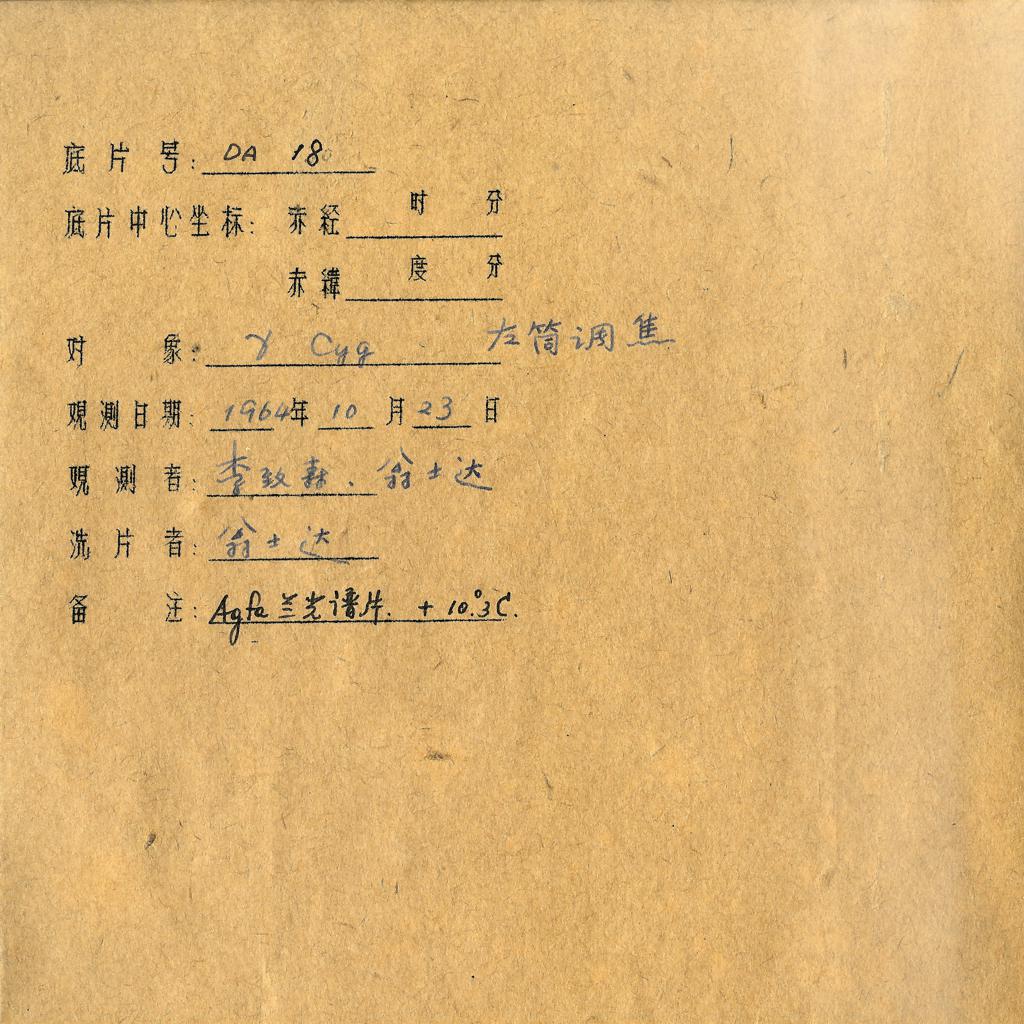 底片号: DA 18
底片中心坐标: 赤经 时 分
赤緯 度 分
对象: γ Cyg 左筒调焦
观测日期: 1964年 10 月 23 日
观测者: 李致森. 翁士达
洗片者: 翁士达
备注: Agfa 兰光谱片. + 10.°3C.